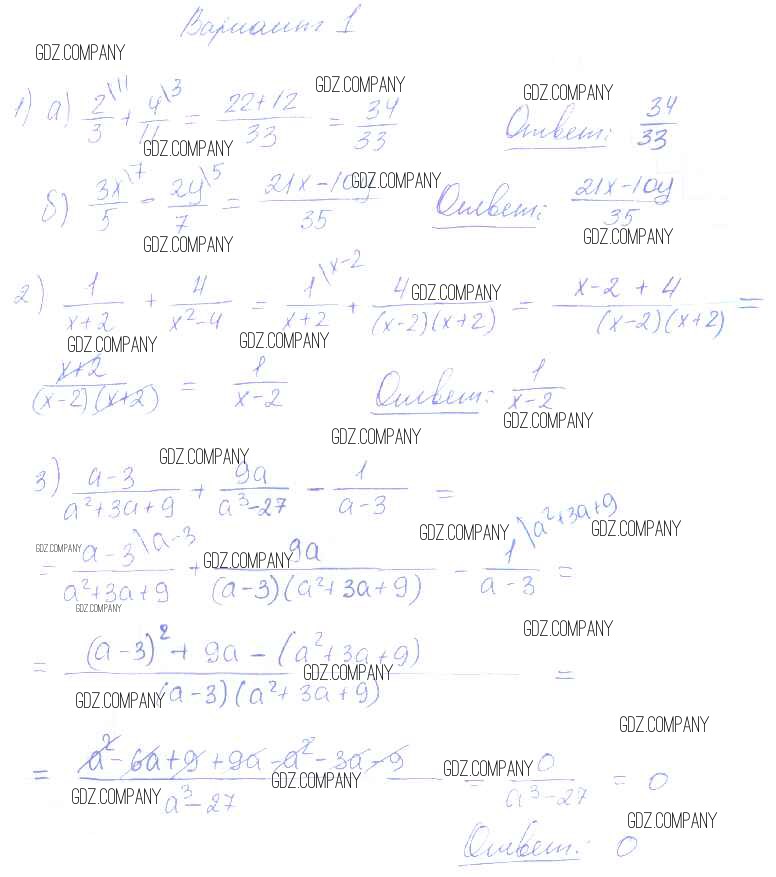 Вариант 1
GDZ.COMPANY
GDZ.COMPANY
GDZ.COMPANY
1) а) 2\11/3 + 4\3/11 = 22+12/33 = 34/33 Ответ: 34/33
GDZ.COMPANY
GDZ.COMPANY
б) 3x\7/5 - 2y\5/7 = 21x-10y/35 Ответ: 21x-10y/35
GDZ.COMPANY
GDZ.COMPANY
2) 1/x+2 + 4/x²-4 = 1\x-2/x+2 + 4/(x-2)(x+2) = x-2+4/(x-2)(x+2) =
GDZ.COMPANY
GDZ.COMPANY
GDZ.COMPANY
x+2/(x-2)(x+2) = 1/x-2 Ответ: 1/x-2
GDZ.COMPANY
GDZ.COMPANY
GDZ.COMPANY
3) a-3/a²+3a+9 + 9a/a³-27 - 1/a-3 =
GDZ.COMPANY
GDZ.COMPANY
GDZ.COMPANY
GDZ.COMPANY
= a-3\a-3/a²+3a+9 + 9a/(a-3)(a²+3a+9) - 1\a²+3a+9/a-3 =
GDZ.COMPANY
GDZ.COMPANY
= (a-3)²+9a-(a²+3a+9)/(a-3)(a²+3a+9) =
GDZ.COMPANY
GDZ.COMPANY
GDZ.COMPANY
= a²-6a+9+9a-a²-3a-9/a³-27 = 0/a³-27 = 0
GDZ.COMPANY
GDZ.COMPANY
GDZ.COMPANY
GDZ.COMPANY
Ответ: 0